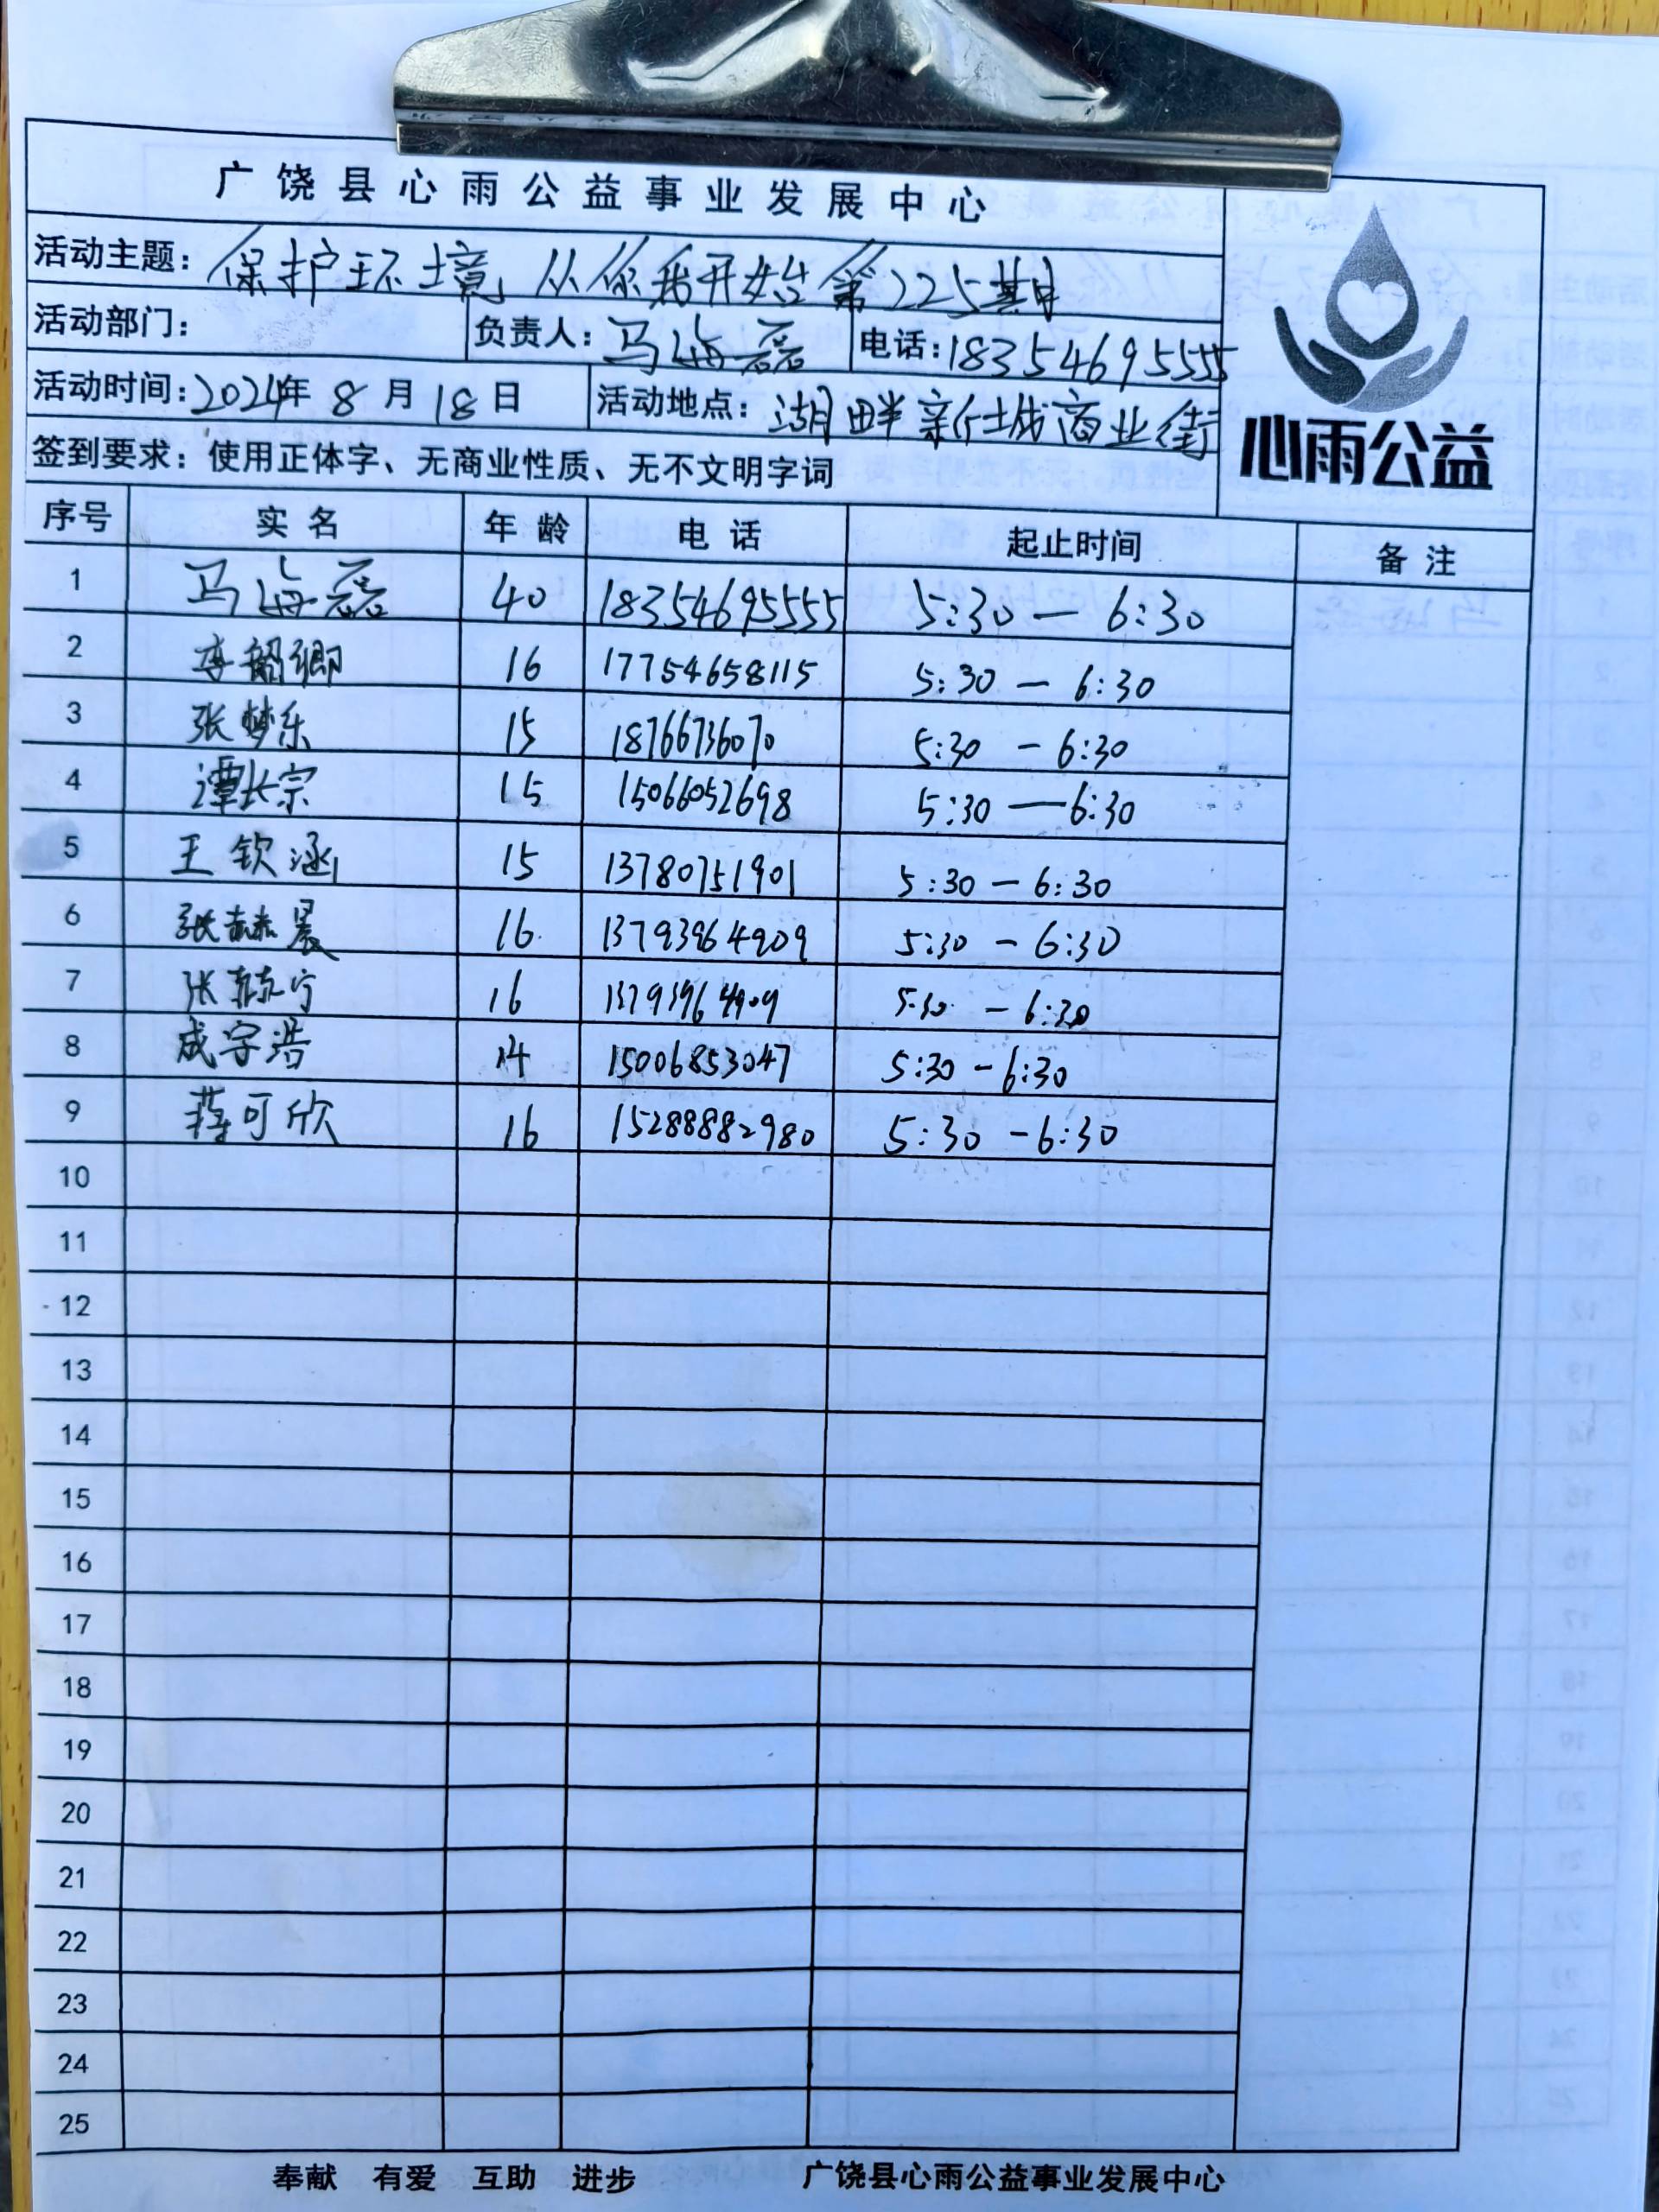 广饶县心雨公益事业发展中心
活动主题：保护环境 从你我开始 第225期
活动部门： 负责人：马海磊 电话：18354695555
活动时间：2024年 8 月 18 日 活动地点：湖畔新城商业街
签到要求：使用正体字、无商业性质、无不文明字词
心雨公益
序号 实名 年龄 电话 起止时间 备注
1 马海磊 40 18354695555 5:30 — 6:30
2 李韶卿 16 17754658115 5:30 — 6:30
3 张梦乐 15 18766736070 5:30 — 6:30
4 谭长宗 15 15066052698 5:30 — 6:30
5 王钦涵 15 13780751901 5:30 — 6:30
6 张赫晨 16 13793964909 5:30 — 6:30
7 张 宁 16 13793964909 5:30 — 6:30
8 成宇浩 14 15006853047 5:30 — 6:30
9 蒋可欣 16 15288882980 5:30 — 6:30
10
11
12
13
14
15
16
17
18
19
20
21
22
23
24
25
奉献 有爱 互助 进步 广饶县心雨公益事业发展中心